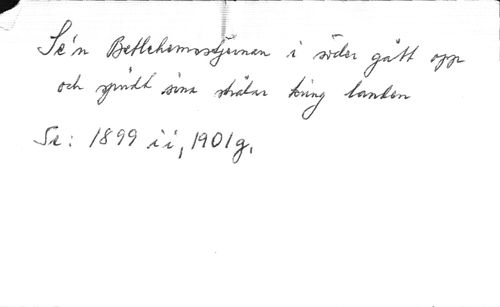 Se'n Betlehemsstjernan i söder gått opp
och spridt sina strålar kring landen
Se: 1899 ii, 1901g.